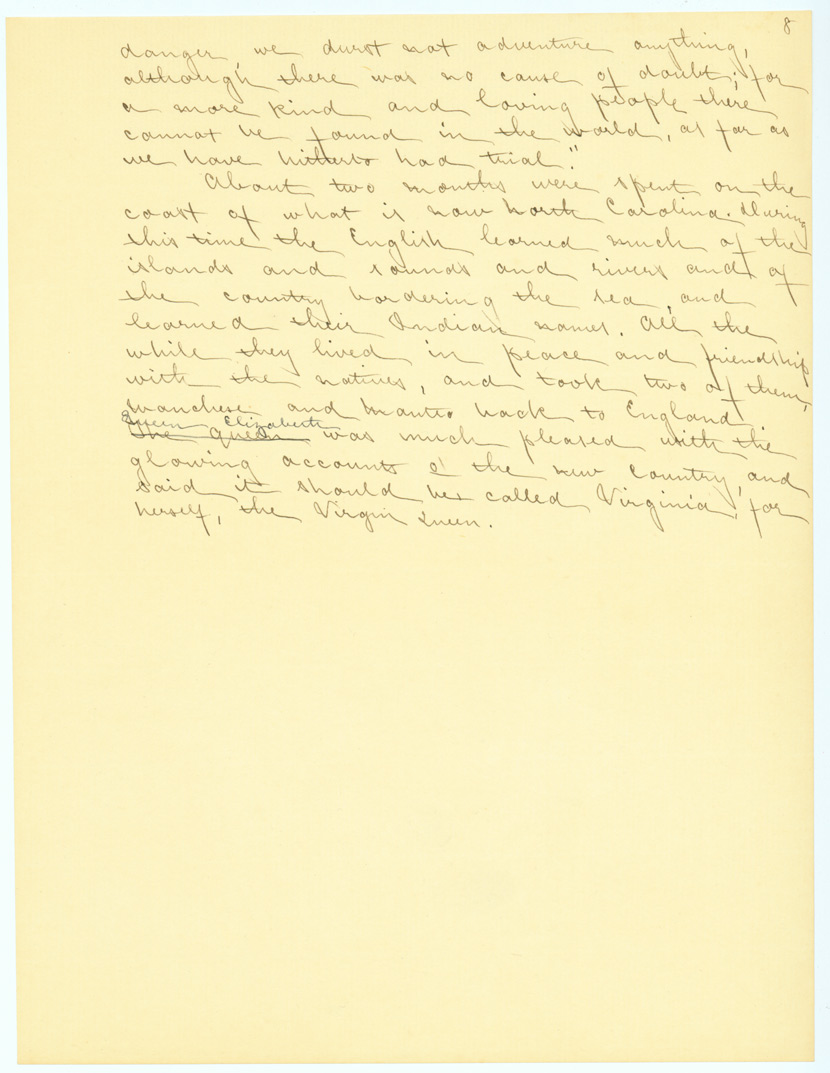 8
danger, we durst not adventure anything,
although there was no cause of doubt; for
a more kind and loving people there
cannot be found in the world, as far as
we have hitherto had trial."
About two months were spent on the
coast of what is now North Carolina. During
this time the English learned much of the
islands and sounds and rivers and of
the country bordering the sea, and
learned their Indian names. All the
while they lived in peace and friendship
with the natives, and took two of them,
Manchese and Manteo back to England.
Queen Elizabeth
The queen was much pleased with the
glowing accounts o' the new country, and
said it should be called Virginia, for
herself, the Virgin Queen.